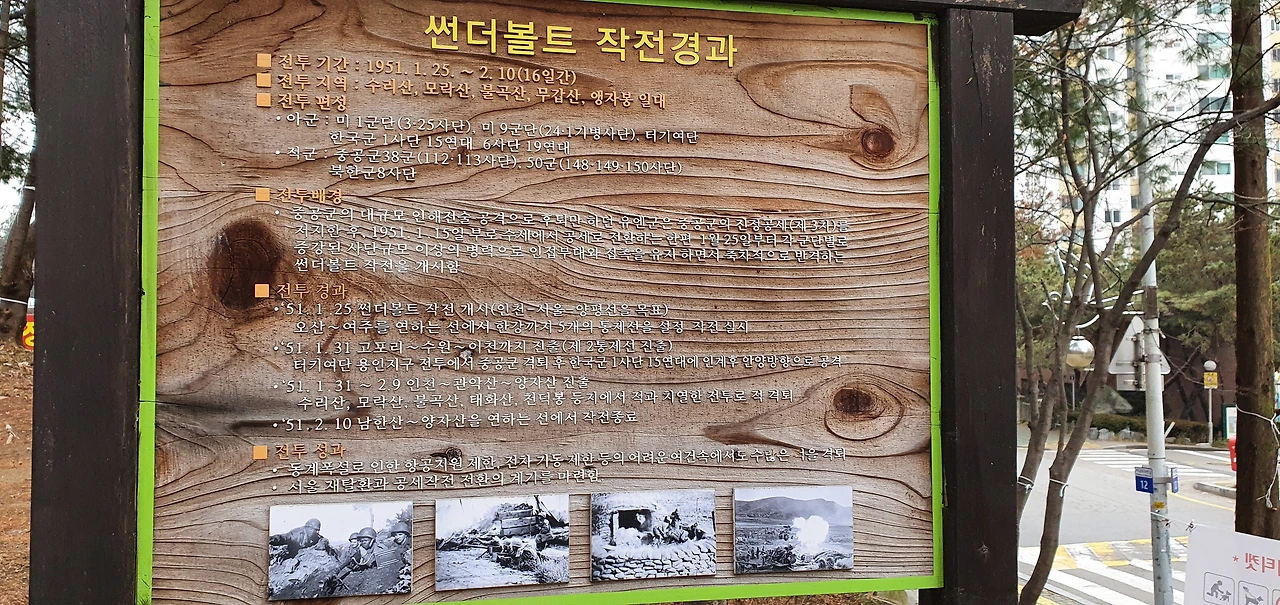 썬더볼트 작전경과
■ 전투 기간 : 1951. 1. 25. ~ 2. 10(16일간)
■ 전투 지역 : 수리산, 모락산, 불곡산, 무갑산, 앵자봉 일대
■ 전투 편성
• 아군 : 미 1군단(3·25사단), 미 9군단(24·1기병사단), 터기여단
한국군 1사단 15연대 6사단 19연대
• 적군 : 중공군38군(112·113사단), 50군(148·149·150사단)
북한군8사단
■ 전투배경
• 중공군의 대규모 인해전술 공격으로 후퇴만 하던 유엔군은 중공군의 신정공세(제3차)를
저지한 후, 1951. 1. 15일 부로 수세에서 공세로 전환하는 한편 1월 25일부터 각 군단별로
증강된 사단규모 이상의 병력으로 인접부대와 접촉을 유지 하면서 축차적으로 반격하는
썬더볼트 작전을 개시함
■ 전투 경과
• '51. 1. 25 썬더볼트 작전 개시(인천~서울~양평선을 목표)
오산~여주를 연하는 선에서 한강까지 5개의 통제선을 설정 작전 실시
• '51. 1. 31 고포리~수원~이천까지 진출(제 2통제선 진출)
터기여단 용인지구 전투에서 중공군 격퇴 후 한국군 1사단 15연대에 인계후 안양방향으로 공격
• '51. 1. 31 ~ 2.9 인천~관악산~양자산 진출
수리산, 모락산, 불곡산, 태화산, 천덕봉 등지에서 적과 치열한 전투로 적 격퇴
• '51. 2. 10 남한산~양자산을 연하는 선에서 작전종료
■ 전투 성과
• 동계폭설로 인한 항공지원 제한, 전차 기동 제한 등의 어려운 여건속에서도 수많은 적을 격퇴
• 서울 재탈환과 공세작전 전환의 계기를 마련함
12